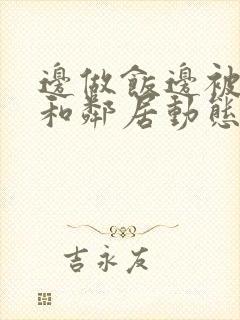 邊做飯邊被
和鄰居動態
吉永友